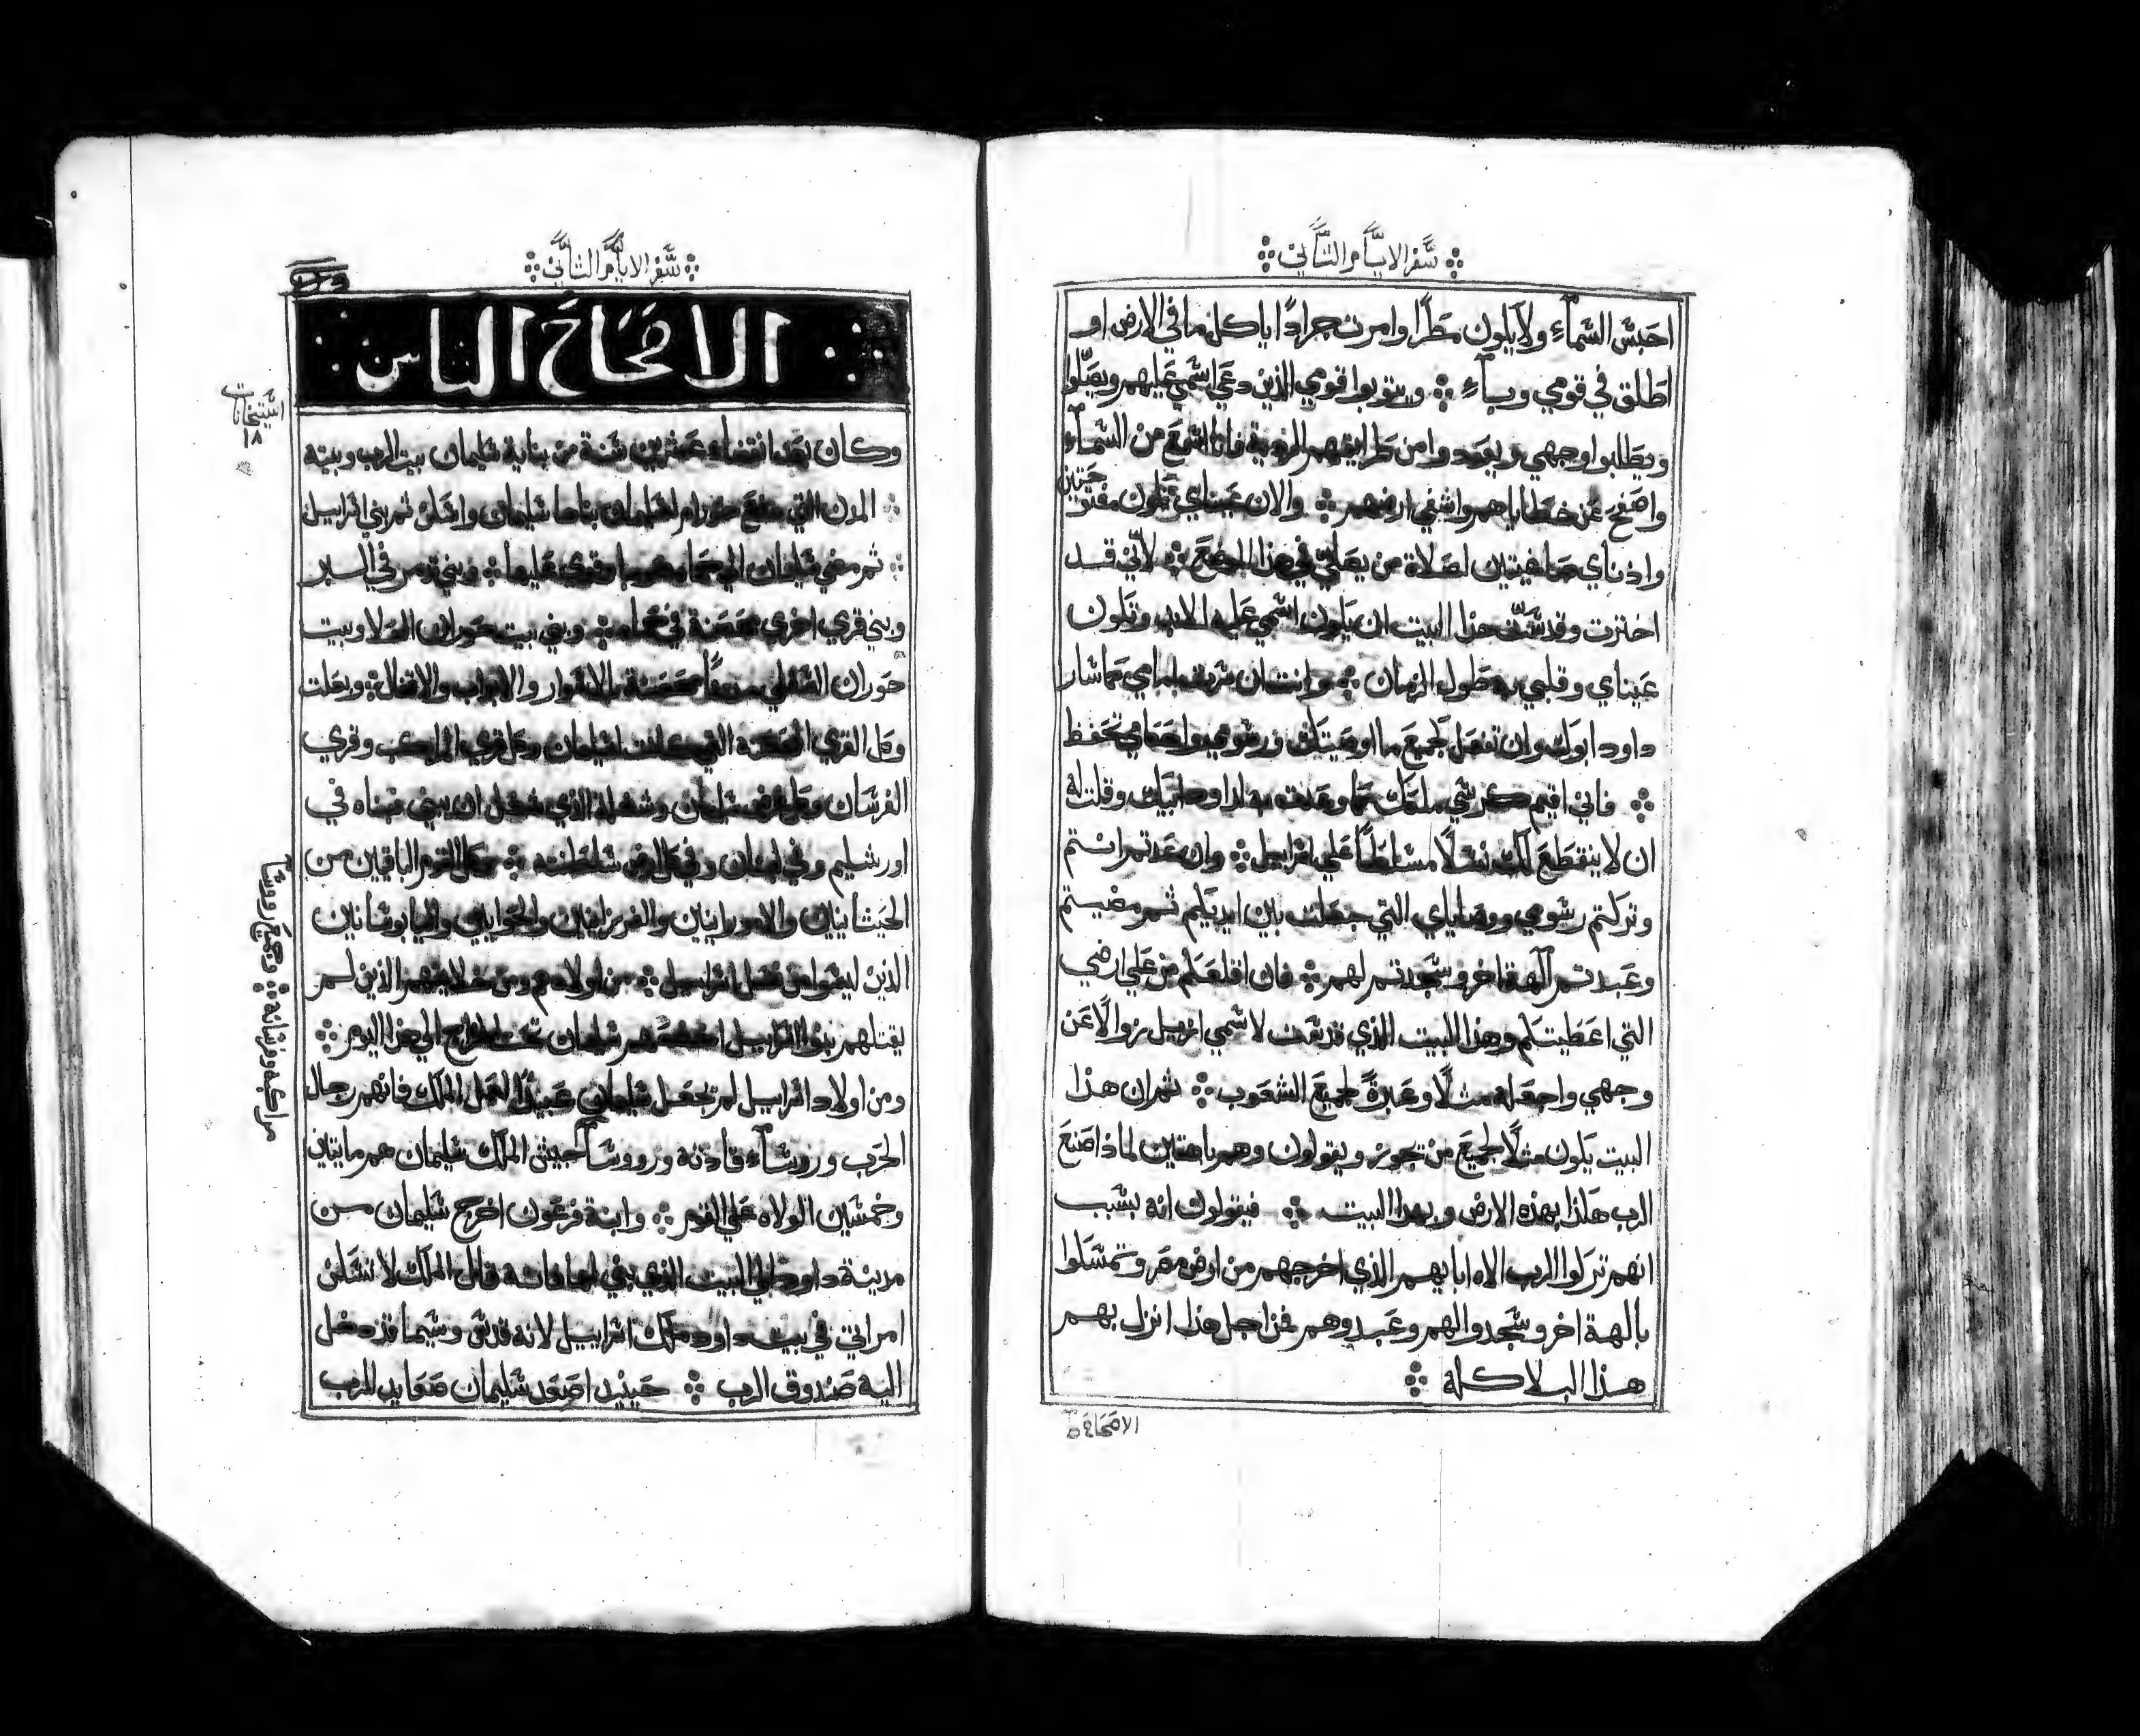 سفر الايام الثاني
احبس السماء ولا يكون مطرا وامرت جرادا ياكل ما في الارض او
اطلق في قومي وباء ويتوبوا قومي الذين دعي اسمي عليهم ويصلوا
ويطلبوا وجهي ويعودوا من طرايقهم الردية فانا اسمع من السماء
واصفح عن خطاياهم واشفي ارضهم والان عيناي تكون مفتوحتين
واذناي صاغيتين لصلاة من يصلي في هذا الموضع لاني قد
اخترت وقدست هذا البيت ان يكون اسمي عليه الابد وتكون
عيناي وقلبي به طول الزمان وانت ان سرت امامي كما سار
داود ابوك وان تفعل لجميع ما اوصيتك ورسومي واحكامي تحفظ
فاني اقيم كرسي ملكك كما وعدته لداود ابيك وقلت له
ان لا ينقطع لك نسلا مسلطا علي اسراييل وان عدتم انتم
وتركتم رسومي ووصاياي التي جعلت بين ايديكم ثم مضيتم
وعبدتم آلهة اخر وسجدتم لهم فانا اقلعكم من علي ارضي
التي اعطيتكم وهذا البيت الذي قدست لاسمي ازيل زوالا عن
وجهي واجعله مثلا وعبرة لجميع الشعوب ثم ان هذا
البيت يكون مثلا لجميع من تجوز ويقولون وهم باهتين لماذا صنع
الرب هكذا بهذه الارض وبهذا البيت فيقولون انه بسبب
انهم تركوا الرب الاه ابايهم الذي اخرجهم من ارض مصر وتمسكوا
بالهة اخر وسجدوا لهم وعبدوهم فمن اجل هذا انزل بهم
هذا البلا كله
سفر الايام الثاني
الاصحاح الثامن
وكان بعد انقضاء عشرين سنة من بناية سليمان بيت الرب وبيته
المدن التي حورام لسليمان بناها سليمان واسكن ثم بني اسراييل
ثم مضي سليمان الي حماه قوي عليها وبني تدمر في البر
وبني قري اخري محصنة في حماه وبني بيت حوران العلا وبيت
حوران السفلي محصنة بالاسوار والابواب والاقفال وبعلت
وكل القري التي كانت لسليمان وكل قري المراكب وقري
الفرسان سليمان الذي ان يبني بناه في
اورشليم وفي لبنان وفي كل ارض سلطنته وكل القوم الباقين من
الحيثانيين والامورانيين والفرزانيين والحوايين واليابوسانيين
الذين ليسوا من نسل اسراييل من اولادهم ومن الذين لم
يقتلهم بنو اسراييل سليمان تحت الخراج الي هذا اليوم
ومن اولاد اسراييل لم يجعل سليمان عبيدا لعمل الملك فانهم رجال
الحرب وروساء قادته ورووسا جيش الملك سليمان هم مايتين
وخمسين الولاه علي القوم وابنة فرعون اخرج سليمان من
مدينة داود الي البيت الذي بني لها فانه قال الملك لا تسكن
امراتي في بيت داود ملك اسراييل لانه قدس وسيما قد دخل
اليه صندوق الرب حينيد اصعد سليمان صعايد للرب
مراكبه وفرسانه وجميع روسا